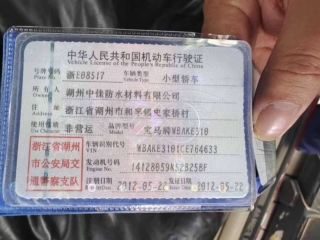 中华人民共和国机动车行驶证
Vehicle License of the People's Republic of China
号牌号码 浙E08517 车辆类型 小型轿车
所有人 湖州中佳防水材料有限公司
住址 浙江省湖州市和孚镇史家桥村
使用性质 非营运 品牌型号 宝马牌WBAKE310
浙江省湖州
市公安局交
通警察支队
车辆识别代号 VIN WBAKE3101CE764633
发动机号码 Engine No. 14128059N52B25BF
注册日期 2012-05-22 发证日期 2012-05-22